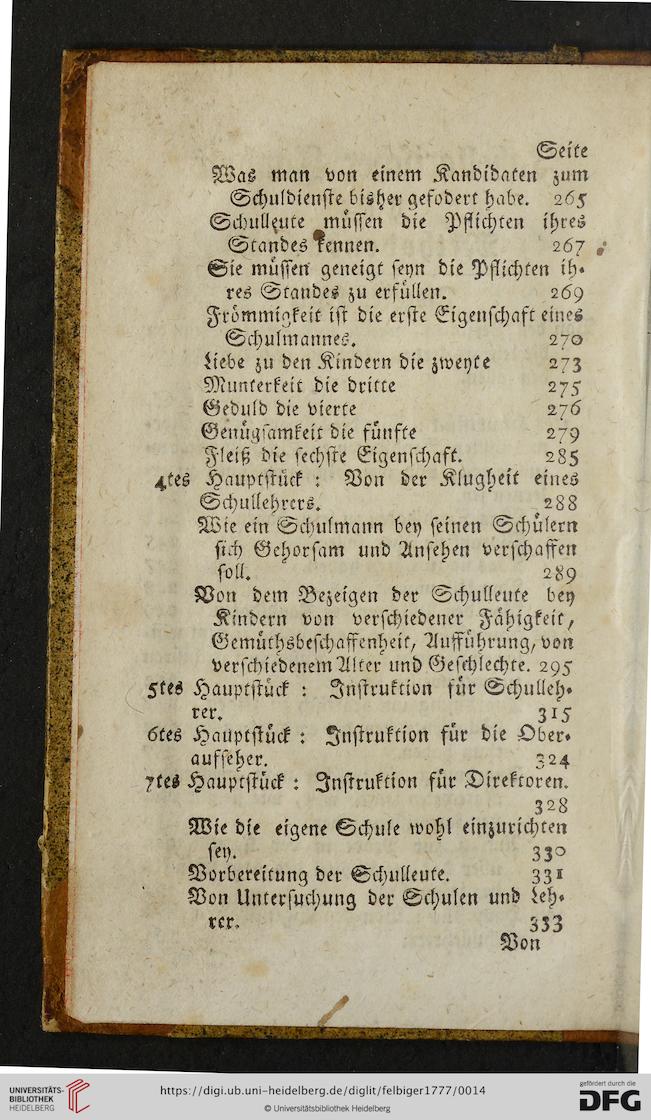 Seite
Was man von einem Kandidaten zum
Schuldienste bisher gefodert habe. 265
Schulleute müssen die Pflichten ihres
Standes kennen. 267
Sie müssen geneigt seyn die Pflichten ih-
res Standes zu erfüllen. 269
Frömmigkeit ist die erste Eigenschaft eines
Schulmannes. 270
Liebe zu den Kindern die zweyte 273
Munterkeit die dritte 275
Geduld die vierte 276
Genügsamkeit die fünfte 279
Fleiß die sechste Eigenschaft. 285
4tes Hauptstück : Von der Klugheit eines
Schullehrers. 288
Wie ein Schulmann bey seinen Schülern
sich Gehorsam und Ansehen verschaffen
soll. 289
Von dem Bezeigen der Schulleute bey
Kindern von verschiedener Fähigkeit,
Gemüthsbeschaffenheit, Aufführung, von
verschiedenem Alter und Geschlechte. 295
5tes Hauptstück : Instruktion für Schulleh-
rer. 315
6tes Hauptstück : Instruktion für die Ober-
aufseher. 324
7tes Hauptstück : Instruktion für Direktoren.
328
Wie die eigene Schule wohl einzurichten
sey. 330
Vorbereitung der Schulleute. 331
Von Untersuchung der Schulen und Leh-
rer. 333
Von
UNIVERSITÄTS-
BIBLIOTHEK
HEIDELBERG
https://digi.ub.uni-heidelberg.de/diglit/felbiger1777/0014
© Universitätsbibliothek Heidelberg
gefördert durch die
DFG